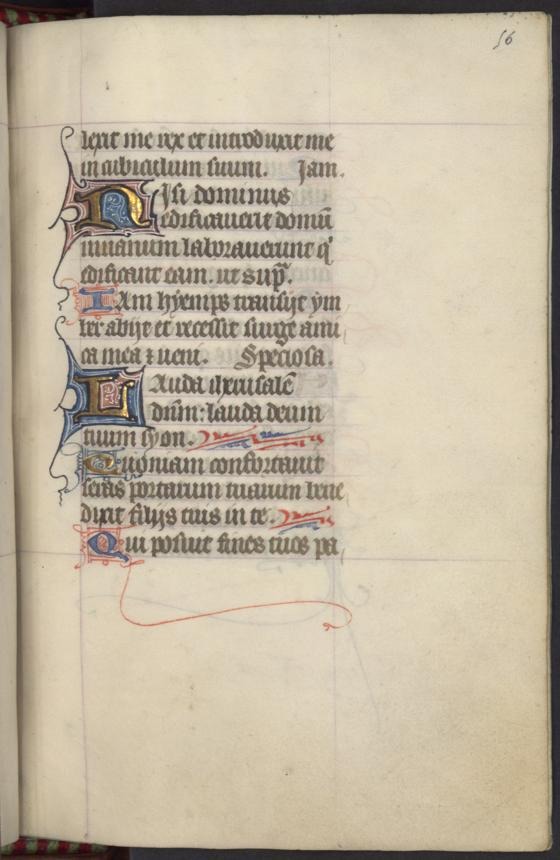 56
lexit me rex et introduxit me
in cubiculum suum. Jam.
Nisi dominus
edificaverit domū
inuanum laborauerunt q'
edificant eam. ut sup̄.
IAm hyemps transijt ym
ber abijt et recessit surge ami
ca mea ⁊ ueni. Speciosa.
LAuda iherusalē
dn̄m: lauda deum
tuum syon.
Quoniam confortauit
seras portarum tuarum bene
dixit filijs tuis in te.
Qui posuit fines tuos pa